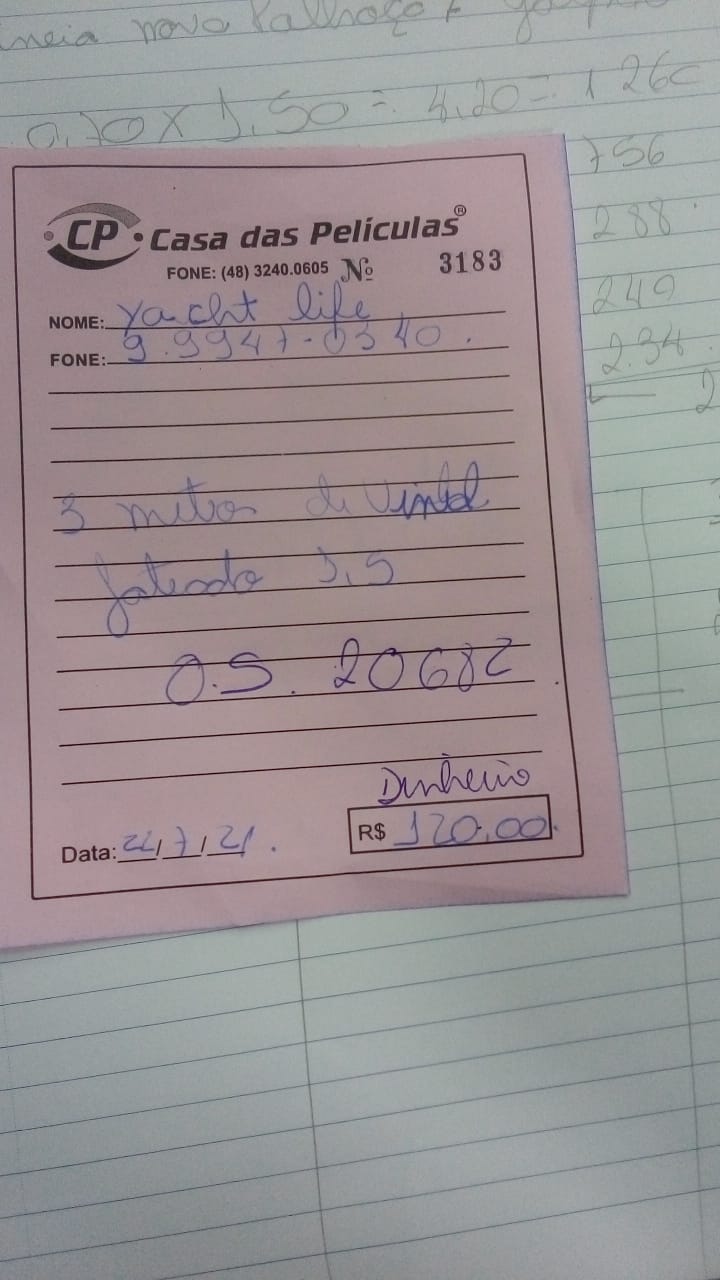 neia novo Palhoça
0,70 x 1,50 = 4.20 = 1260
756
288
249
2.34
2
CP Casa das Películas®
FONE: (48) 3240.0605 Nº 3183
NOME: Yacht life
FONE: 9.9947-0340.
3 metros de Vinil
Jateado 1,5
O.S. 20682
Dinheiro
Data: 22/7/21. R$ 120,00.